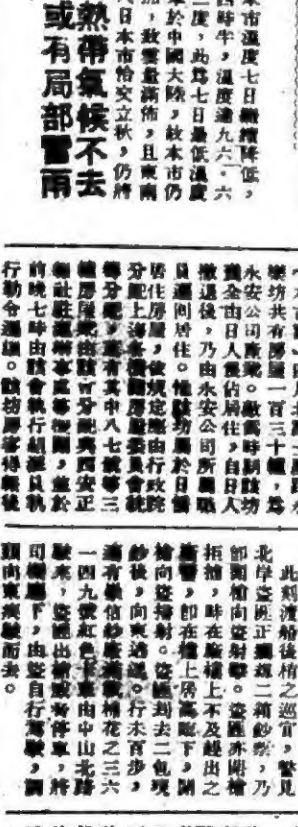 本市溫度七日繼續降低，
四時半，溫度達九六·六
二度，此爲七日最低溫度
於中國大陸，故本市仍
，致雲量滿佈，且東南
日本市恰交立秋，仍將
熱帶氣候不去
或有局部雷雨
樂坊共有房屋一百三十幢，爲
永安公司產業。敵僞時期該坊
全由日人佔居住，自日人
撤退後，乃由永安公司所屬職
員遷回居住。惟該坊屬於日僑
居住房屋，依規定應由行政院
分配上海房屋委員會統
分配，其中八七號等三
幢房屋由該會分配與西安正
報社駐滬辦事處等機關，並於
前晚七時由該會執行組派員執
行勒令遷讓。該坊房客得報後
此刻渡船後梢之巡官，瞥見
北岸盜匪正搬二箱鈔票，乃
即開槍向盜射擊。盜匪亦開槍
拒捕，時在廠樓上不及趕出之
警，即在樓上居高臨下，開
槍向盜掃射。盜匪刦去二包現
鈔後，向東逃逸。行未百步，
適有信紗廠滿載棉花之三六
一四九號紅色卡車由中山北路
駛來，盜匪出槍喝令停車，將
司機驅下，由盜自行駕駛，調
頭向東疾駛而去。